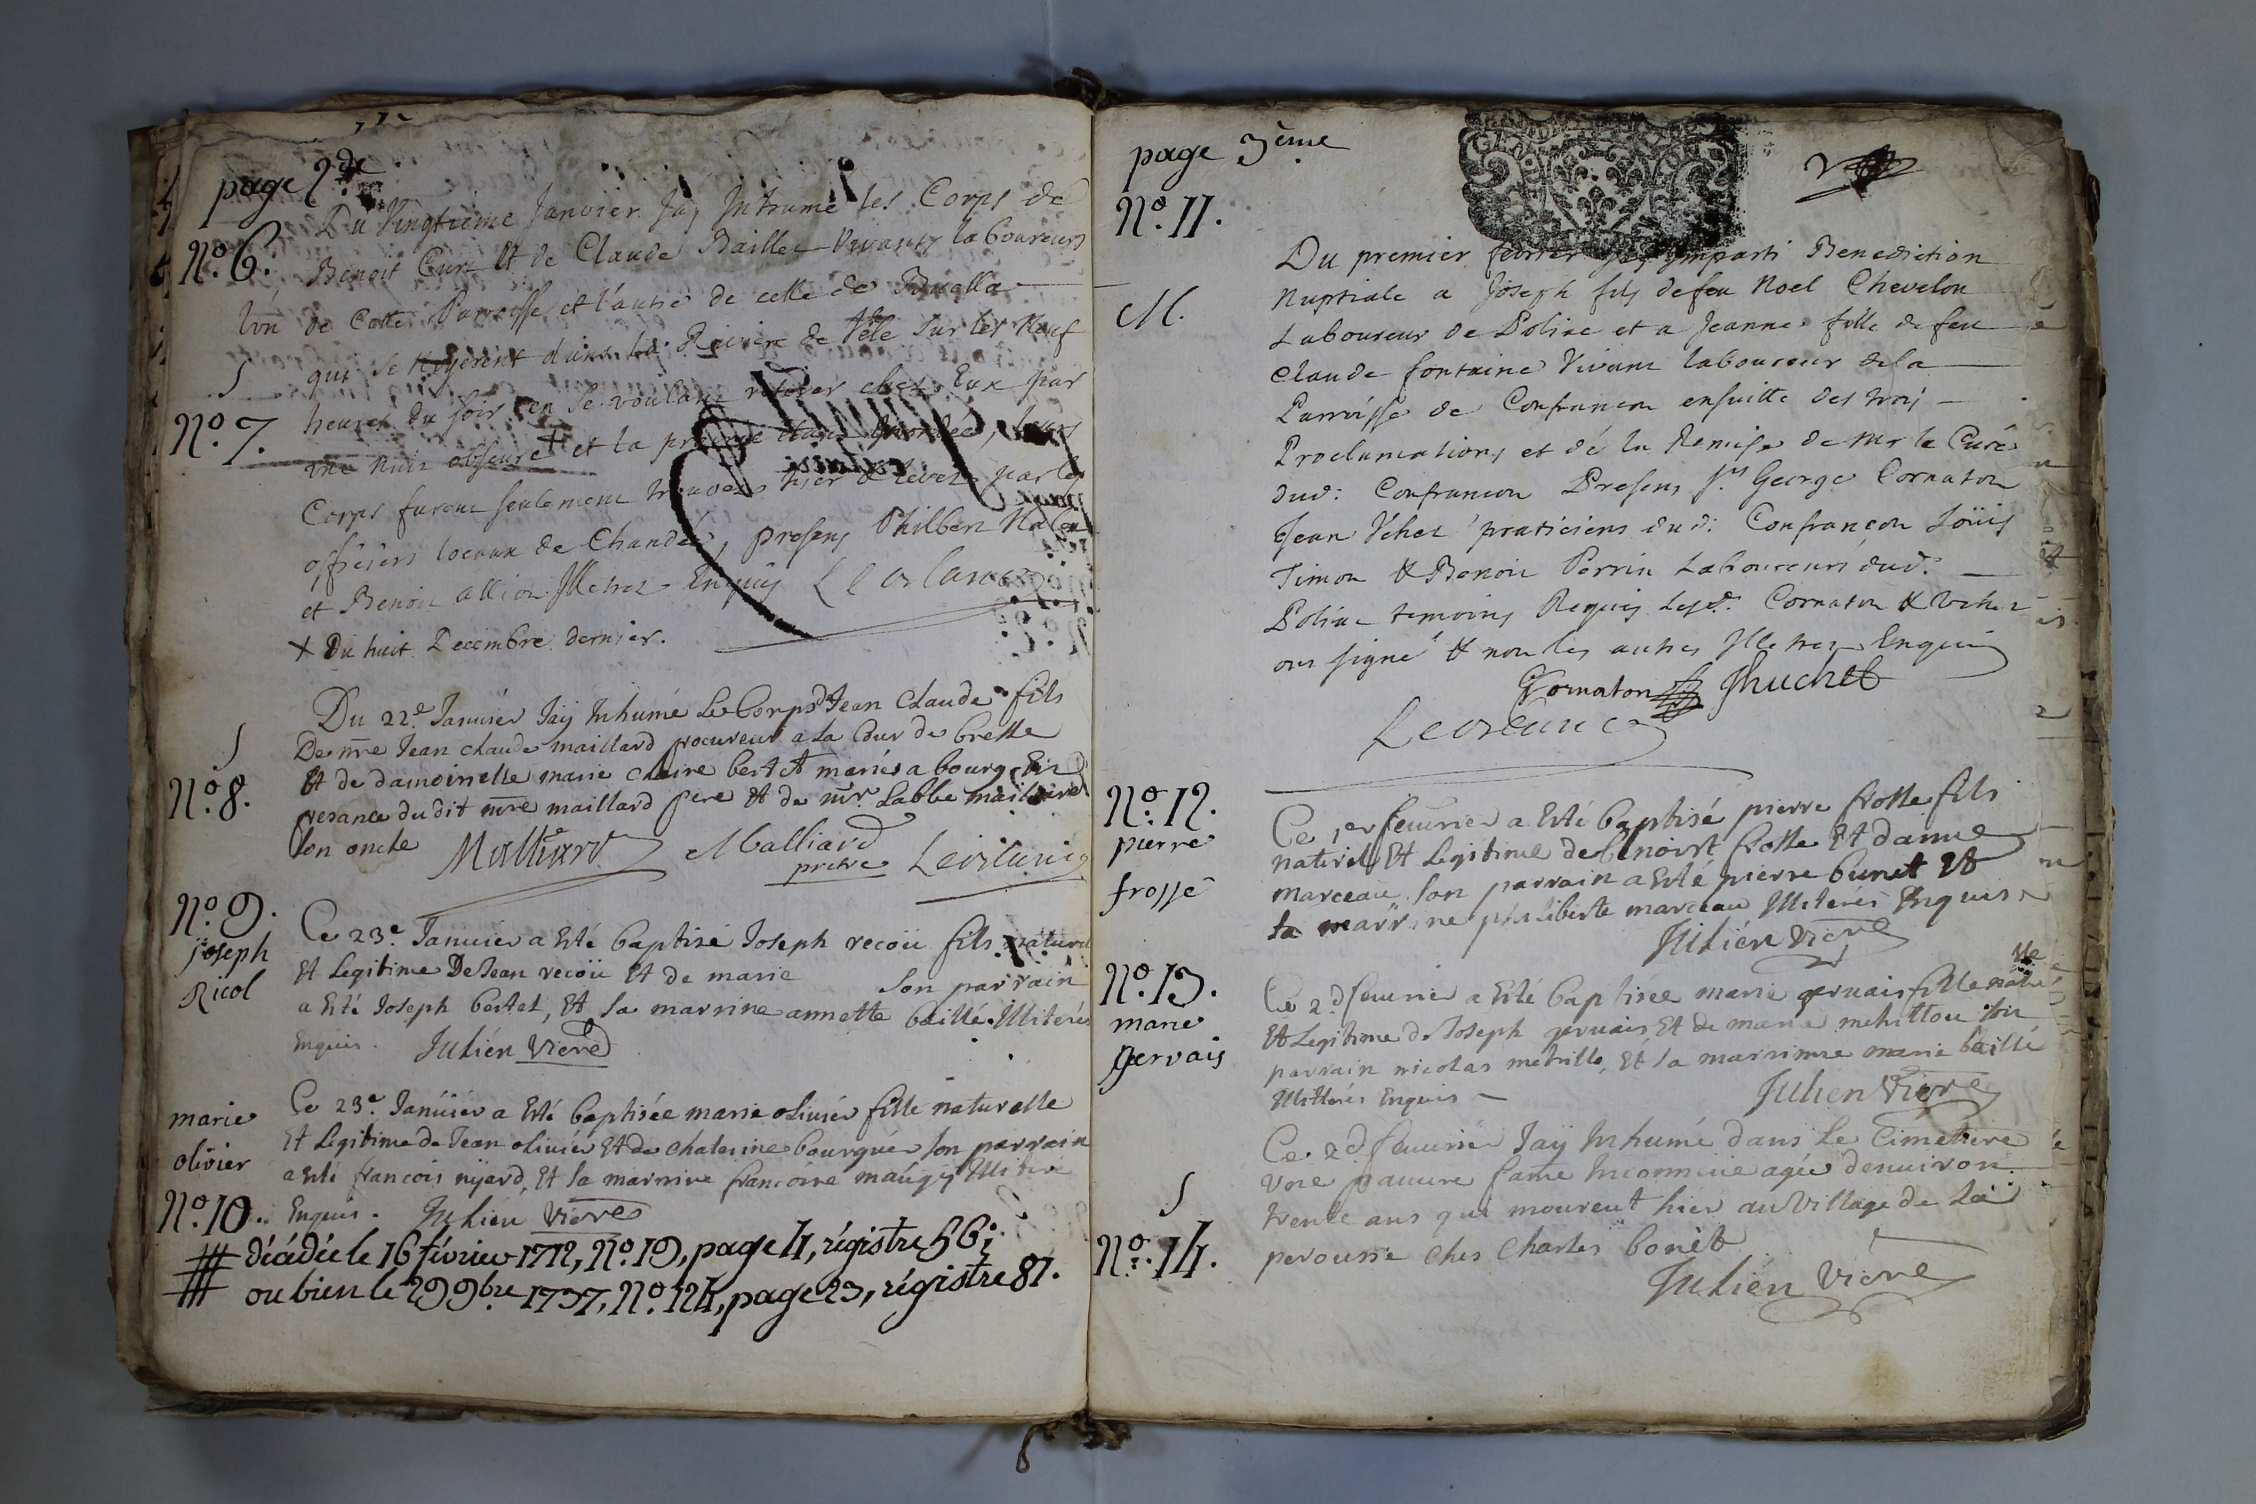 page 2de
Du Vingtieme Janvier Jay Inhumé les Corps de
No. 6. Benoit Curt & de Claude Baillet vivants laboureurs
lun de cette Parroisse et l'autre de celle de
S qui se Noyerent dans la Riviere de Vèle sur les Neuf
No. 7. heures du soir en se voulant retirer chez Eux par
une nuit obscure + et la
Corps furent seulement trouvés hier & levés par les
officiers locaux de Chandée, presens Philben
et Benoit allion Illetrez Enquis
+ Du huit Decembre dernier.
Du 22e Januier Jaÿ Inhumé Le Corps d Jean Claude fils
S De mre Jean claude maillard procureur a La Cour de bresse
Et de damoiselle marie claire bertet mariés a bourg En
No. 8. presance du dit mre maillard pere Et de mr. Labbe maillard
son oncle Malliard Malliard
pretre
No. 9. Ce 23e Januier a Esté baptisé Joseph recoü fils naturel
joseph Et Legitime De Jean recoü Et de marie son parrain
Ricol a Esté Joseph bertet, Et sa marrine annette baillé Illiterés
Enquis. Julien Viere
Ce 23e. Januier a Esté baptisée marie oliuier fille naturelle
marie Et Legitime de Jean oliuier Et de chaterine bourguer son parrain
olivier a Esté francois nyard, Et sa marrine francoise maugy
No. 10. Enquis. Julien Viere
décédée le 16 février 1712, No. 19, page 4, régistre 56;
ou bien le 29 9bre 1737, No. 124, page 23, régistre 81.
page 3ème
No. 11.
Du premier fevrier jay Imparti Benediction
M. Nuptiale a Joseph fils de feu Noel Chevelon
Laboureur de Poliac et a Jeanne fille de feu
Claude fontaine Vivant laboureur de la
Parroisse de Confrancon ensuitte des trois
Proclamations et de la Remise de Mr le Curé
dud: Confrancon Presens Sr. George Cornaton
Jean Vchet praticiens dud: Confrançon Loüis
Timon & Benoit Perrin Laboureurs dud:
Poliac temoins Requis Lesd: Cornaton & Vchet
ont signé & non les autres Illetrez Enquis
Cornaton Jhuchet
No. 12. Ce 1er feuurier a Esté baptisé pierre frosse fils
pierre naturel Et Legitime de benoist frosse Et danne
frossé marceau son parrain a Esté pierre bunet Et
la marrine philiberte marceau Illiterés Enquis
Julien Viere
No. 13. Ce 2d feuurier a Esté baptisée marie geruais fille natu lle
marie Et Legitime de Joseph geruais Et de marie son
Gervais parrain nicolas metrille, Et sa marrinne marie baillé
Illitterés Enquis Julien Viere
Ce 2d feuurier Jaÿ Inhumé dans Le Cimetiere
S vne pauure fame Inconnuie agée denuiron
trente ans qui mourut hier au Village de La
No. 14. perousse ches Charles bonèt
Julien Viere